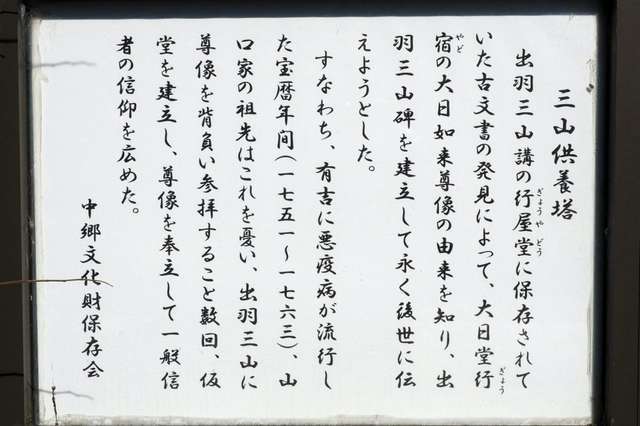 三山供養塔
出羽三山講の行屋堂に保存されて
いた古文書の発見によって、大日堂行
宿の大日如来尊像の由来を知り、出
羽三山碑を建立して永く後世に伝
えようとした。
すなわち、有吉に悪疫病が流行し
た宝暦年间(一七五一〜一七六三)、山
口家の祖先はこれを憂い、出羽三山に
尊像を背負い参拝すること数回、仮
堂を建立し、尊像を奉立して一般信
者の信仰を広めた。
中郷文化財保存会